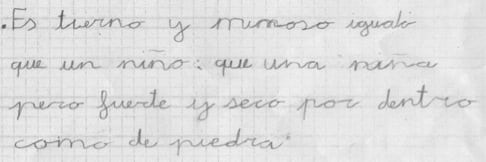 .Es tierno y mimoso igual
que un niño: que una niña
pero fuerte y seco por dentro
como de piedra.